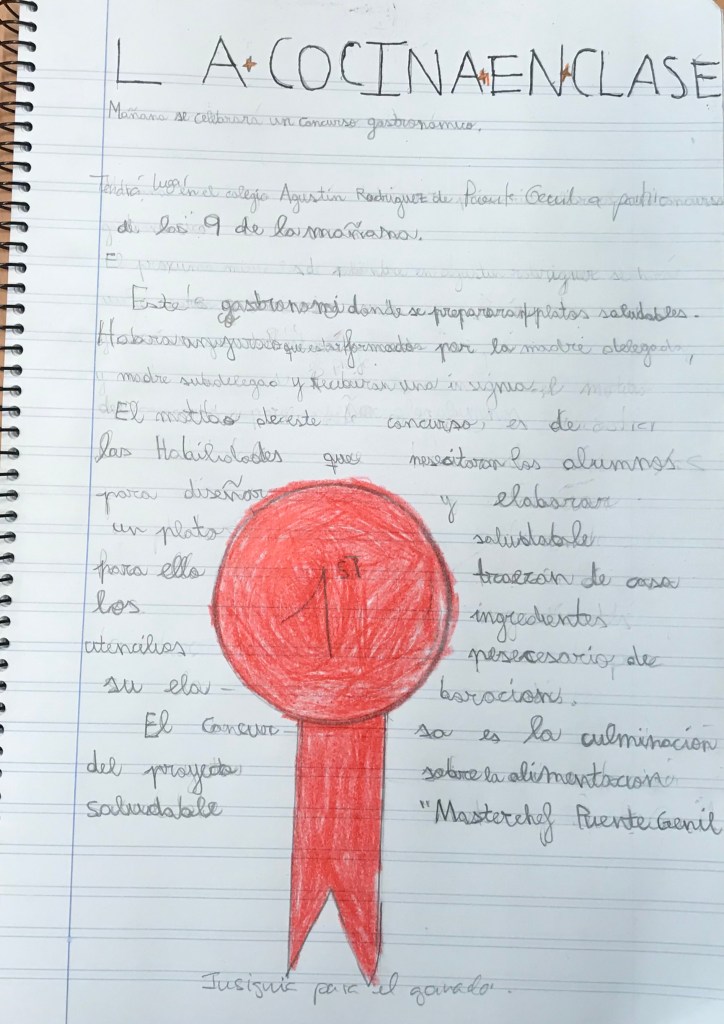 LA COCINA EN CLASE
Mañana se celebrará un concurso gastronómico.
Tendrá lugar en el colegio Agustín Rodríguez de Puente Genil a
de las 9 de la mañana.
Este gastronomi donde se prepararan platos saludables.
Habara un jurado que estar formados por la madre delegada,
y madre subdelegad y recibiran una insignia,
El motivo de este concurso, es de
las Habilidades que nesecitaran los alumnos
para diseñar y elaborar
un plato saludable
para ello traerán de casa
los ingredientes
utencilios de
su ela- boracions.
El Concur- so es la culminación
del proyecto sobre la alimentacion
saludable "Masterchef Puente Genil
1ST
Insignia para el ganador.